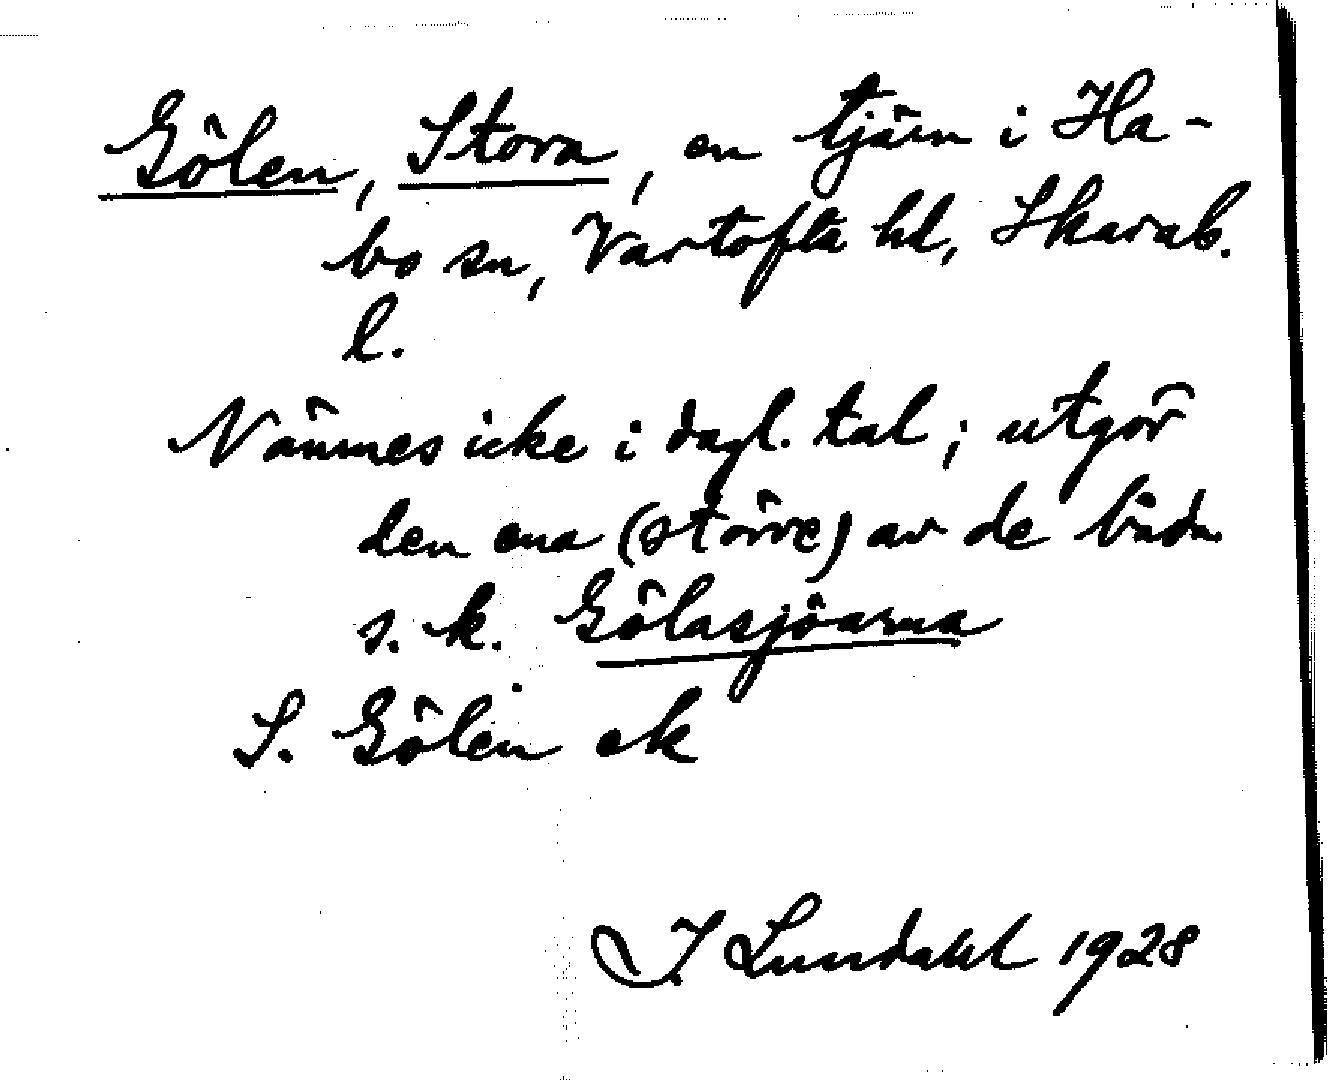 Gölen, Stora, en tjärn i Ha-
bo sn, Vartofta hd, Skarab.
l.
Nämnes icke i dagl. tal; utgör
den ena (större) av de båda
s. k. Gölasjöarna
S. Gölen ek
J Lundahl 1928